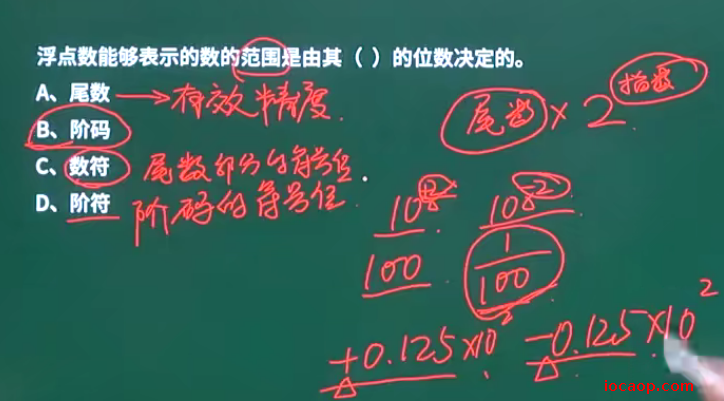 浮点数能够表示的数的范围是由其（ ）的位数决定的。
A、尾数 → 有效精度
B、阶码
C、数符 尾数部分的符号位.
D、阶符 阶码的符号位.
尾数 × 2 指数
10 +2 10 -2
100 1/100
+0.125×10² -0.125×10²
iocaop.com